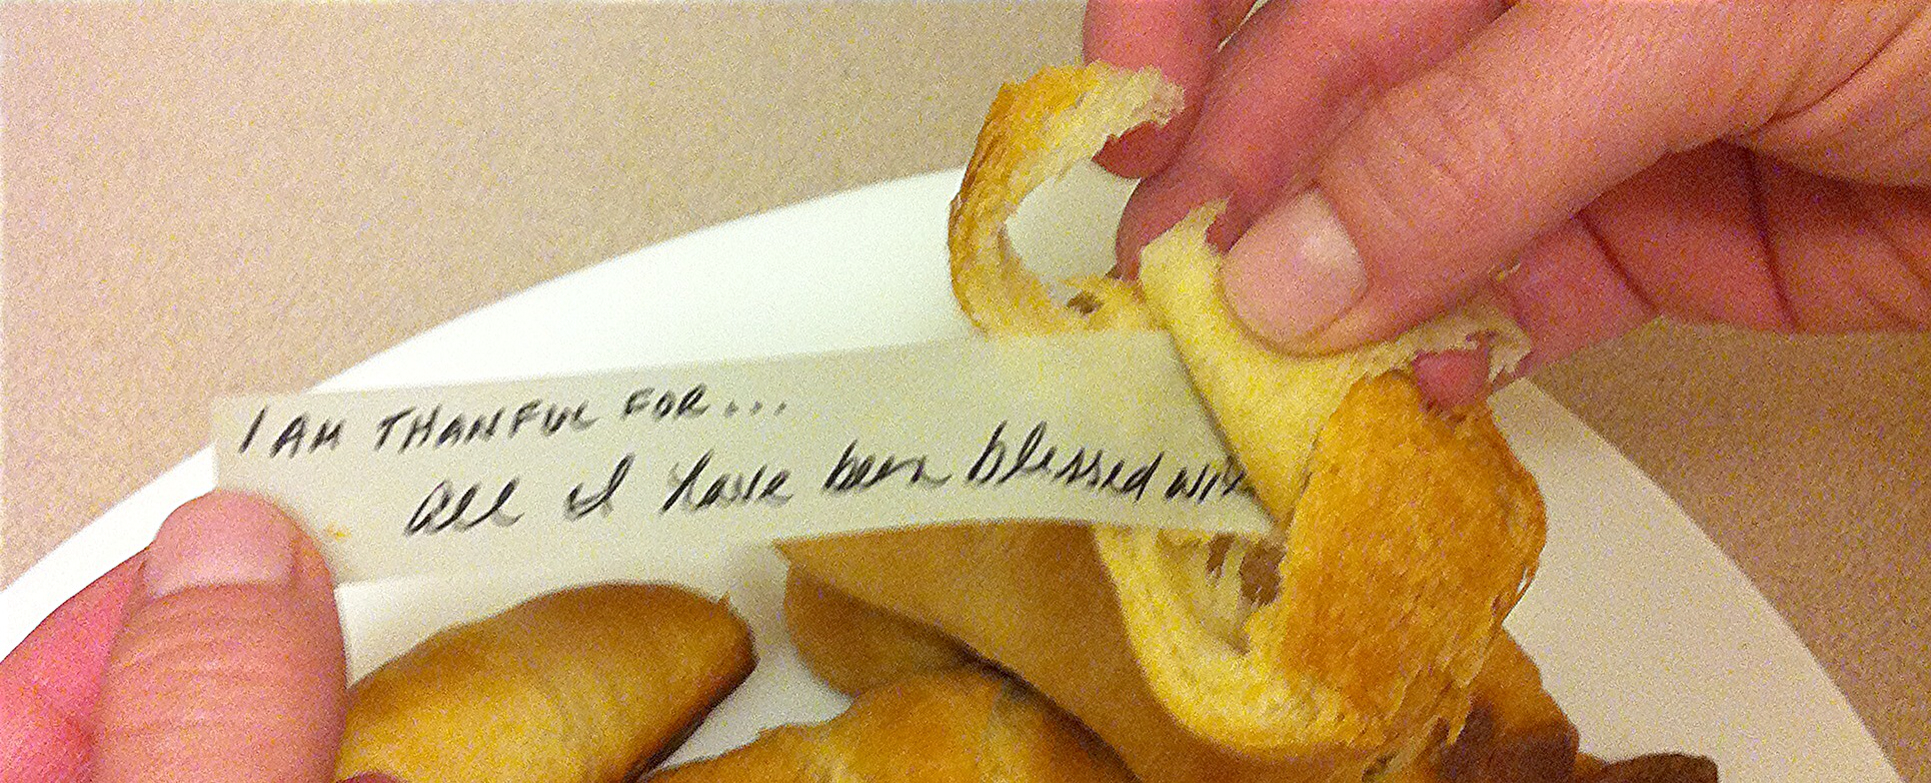 I AM THANFUL FOR...
All I have been blessed with